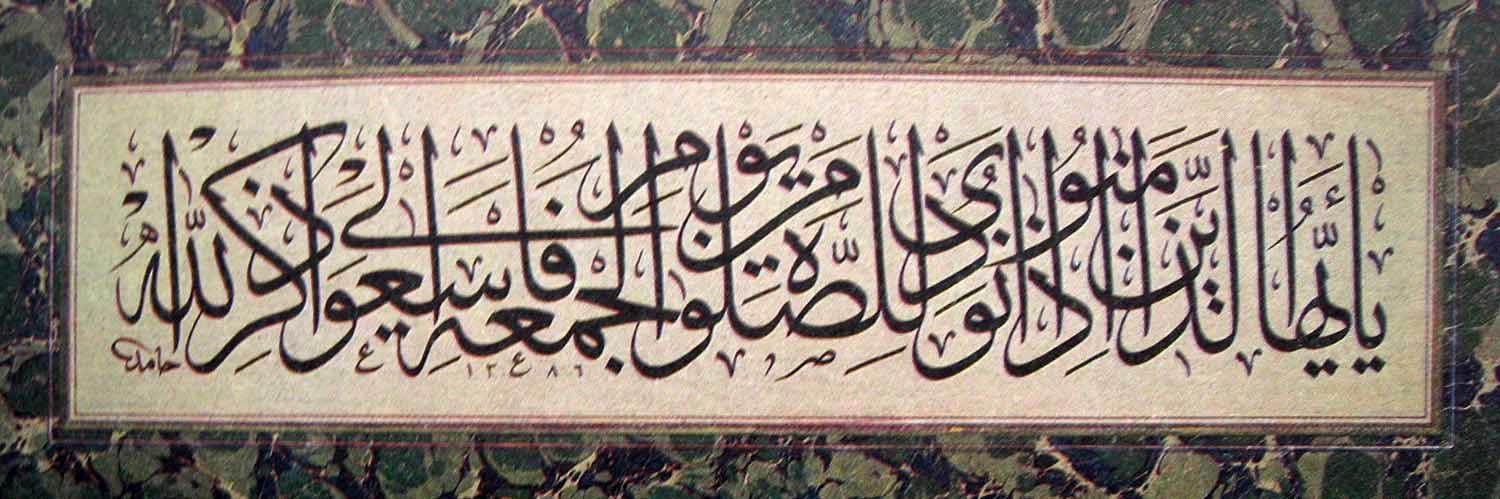 يَا أَيُّهَا الَّذِينَ آمَنُوا إِذَا نُودِيَ لِلصَّلَوةِ مِنْ يَوْمِ الْجُمُعَةِ فَاسْعَوْا إِلَى ذِكْرِ اللَّهِ
حامد